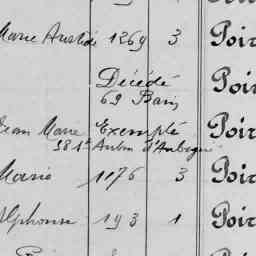 Marie Aristide 1269 3 Poir
Décédé Poir
69 Bais
Jean Marie Exempté Poir
58 St Aubin d'Aubigné
Marie 1176 3 Poir
Alphonse 193 1 Poir